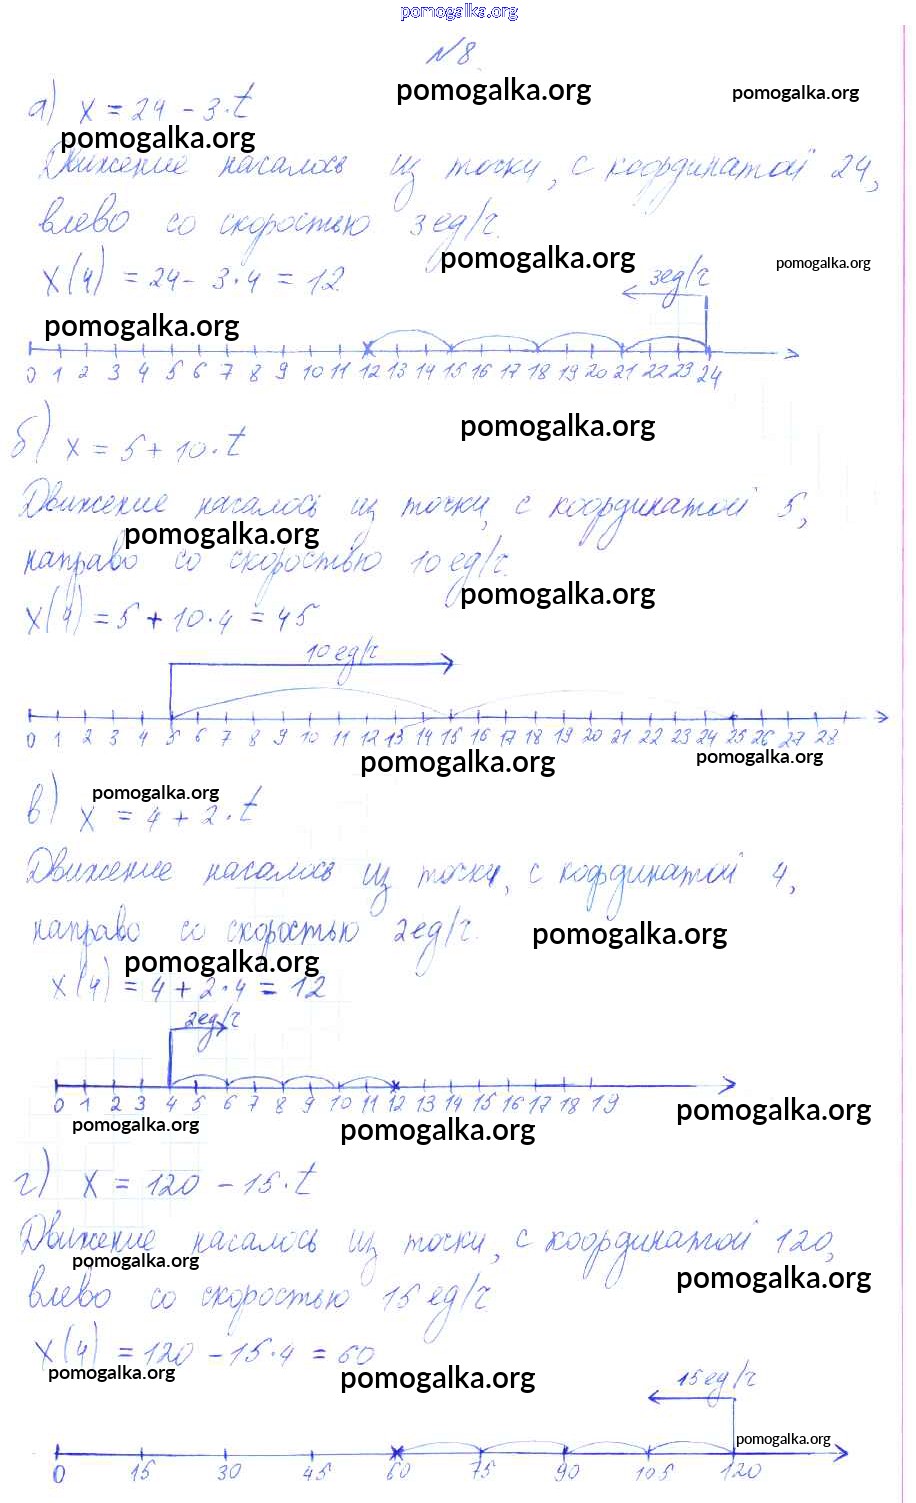 pomogalka.org
№8.
pomogalka.org pomogalka.org
а) x = 24 - 3·t
pomogalka.org
Движение началось из точки, с координатой 24,
влево со скоростью 3 ед/ч.
pomogalka.org pomogalka.org
x(4) = 24 - 3·4 = 12. 3ед/ч
pomogalka.org
0 1 2 3 4 5 6 7 8 9 10 11 12 13 14 15 16 17 18 19 20 21 22 23 24
pomogalka.org
б) x = 5 + 10·t
Движение началось из точки, с координатой 5,
pomogalka.org
направо со скоростью 10 ед/ч.
pomogalka.org
x(4) = 5 + 10·4 = 45
10 ед/ч
0 1 2 3 4 5 6 7 8 9 10 11 12 13 14 15 16 17 18 19 20 21 22 23 24 25 26 27 28
pomogalka.org pomogalka.org
pomogalka.org
в) x = 4 + 2·t
Движение началось из точки, с координатой 4,
направо со скоростью 2ед/ч.
pomogalka.org
pomogalka.org
x(4) = 4 + 2·4 = 12
2ед/ч
0 1 2 3 4 5 6 7 8 9 10 11 12 13 14 15 16 17 18 19
pomogalka.org pomogalka.org pomogalka.org
г) x = 120 - 15·t
Движение началось из точки, с координатой 120,
pomogalka.org
pomogalka.org
влево со скоростью 15 ед/ч
x(4) = 120 - 15·4 = 60
pomogalka.org pomogalka.org 15 ед/ч
pomogalka.org
0 15 30 45 60 75 90 105 120